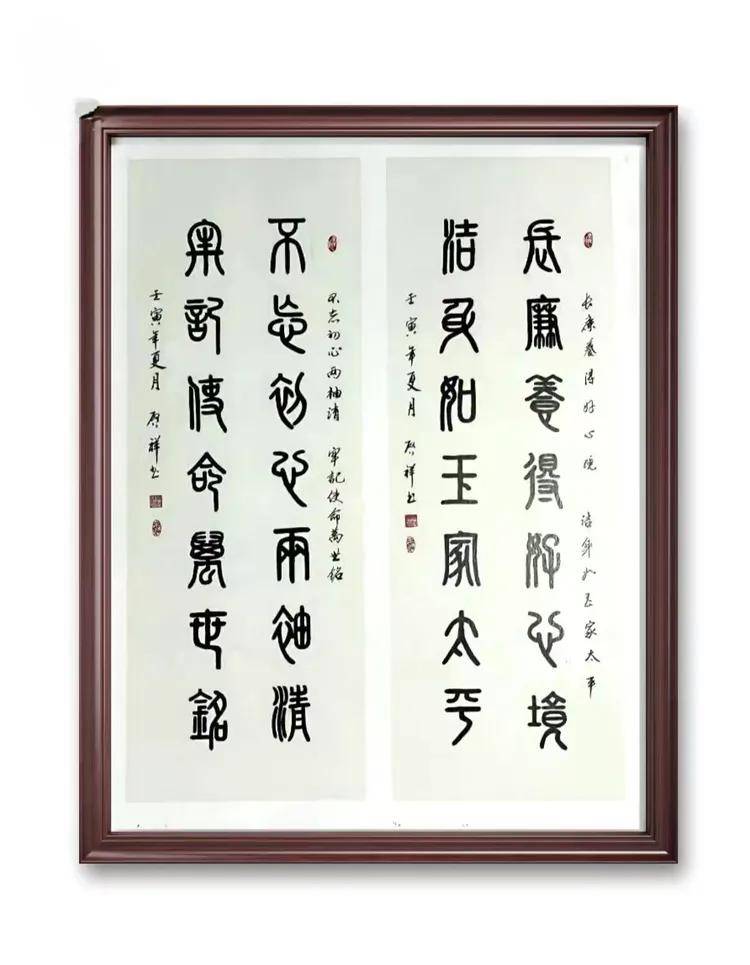 长廉养得好心境 洁身如玉家太平
長廉養得好心境
洁身如玉家太平
壬寅年夏月 启祥书
不忘初心两袖清 牢记使命万世铭
不忘初心兩袖清
牢記使命萬世銘
壬寅年夏月 启祥书